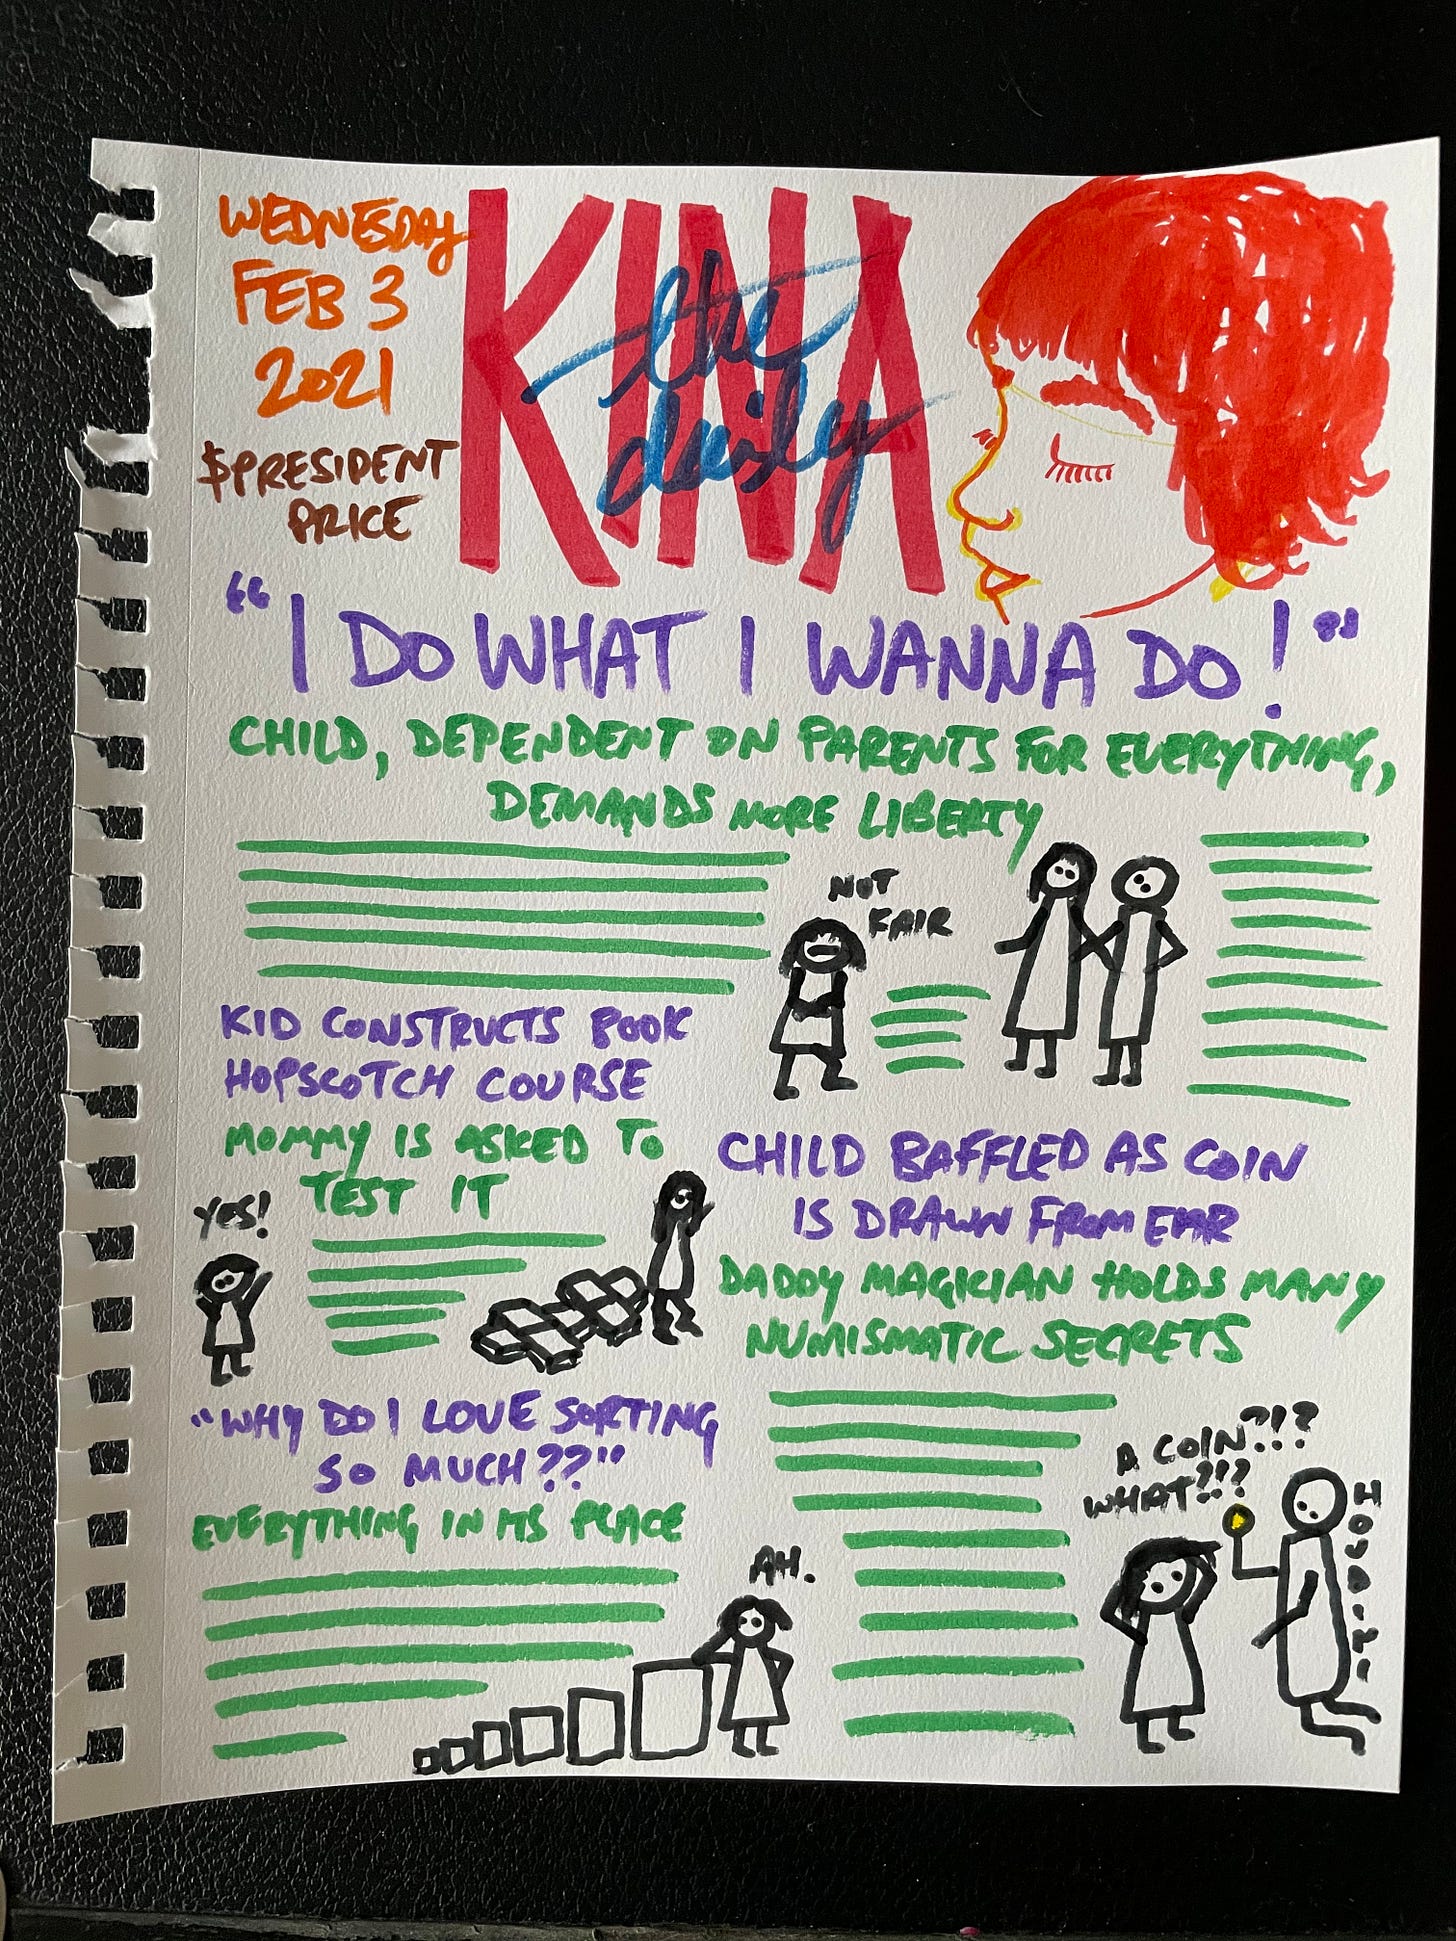 WEDNESDAY
FEB 3
2021
$PRESIDENT
PRICE
the
daily
KINA
"I DO WHAT I WANNA DO!"
CHILD, DEPENDENT ON PARENTS FOR EVERYTHING,
DEMANDS MORE LIBERTY
NOT
FAIR
KID CONSTRUCTS BOOK
HOPSCOTCH COURSE
MOMMY IS ASKED TO
TEST IT
YES!
CHILD BAFFLED AS COIN
IS DRAWN FROM EAR
DADDY MAGICIAN HOLDS MANY
NUMISMATIC SECRETS
"WHY DO I LOVE SORTING
SO MUCH??"
EVERYTHING IN ITS PLACE
AH.
A COIN?!?
WHAT?!?
HOUDINI